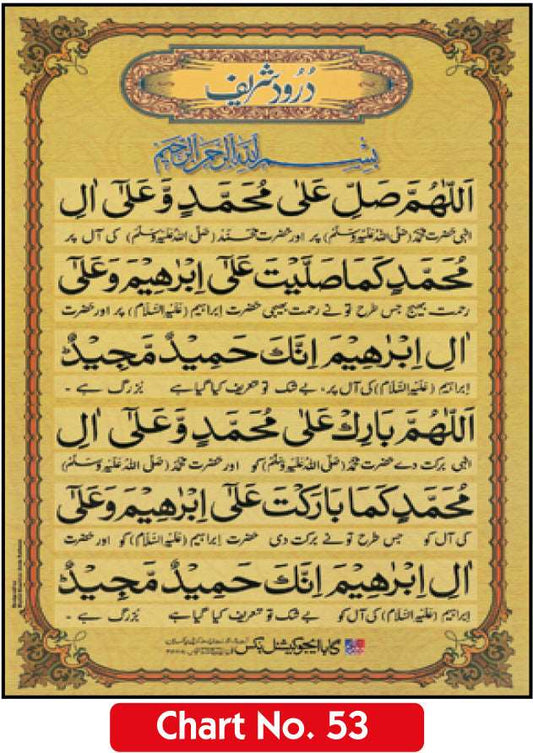 دُرُود شریف
بِسْمِ اللهِ الرَّحْمٰنِ الرَّحِيْمِ
اَللّٰهُمَّ صَلِّ عَلٰى مُحَمَّدٍ وَّ عَلٰٓى اٰلِ
الٰہی حضرت محمّدؐ (صَلَّی اللہُ عَلَیْہِ وَسَلَّمْ) پر اور حضرت محمّدؐ (صَلَّی اللہُ عَلَیْہِ وَسَلَّمْ) کی آل پر
مُحَمَّدٍ كَمَا صَلَّيْتَ عَلٰٓى اِبْرٰهِيْمَ وَ عَلٰٓى
رحمت بھیج جس طرح تو نے رحمت بھیجی حضرت ابراہیم (عَلَیْہِ السَّلَام) پر اور حضرت
اٰلِ اِبْرٰهِيْمَ اِنَّكَ حَمِيْدٌ مَّجِيْدٌ
ابراہیم (عَلَیْہِ السَّلَام) کی آل پر، بے شک تو تعریف کیا گیا ہے بُزرگ ہے -
اَللّٰهُمَّ بَارِكْ عَلٰى مُحَمَّدٍ وَّ عَلٰٓى اٰلِ
الٰہی برکت دے حضرت محمّدؐ (صَلَّی اللہُ عَلَیْہِ وَسَلَّمْ) کو اور حضرت محمّدؐ (صَلَّی اللہُ عَلَیْہِ وَسَلَّمْ)
مُحَمَّدٍ كَمَا بَارَكْتَ عَلٰٓى اِبْرٰهِيْمَ وَ عَلٰٓى
کی آل کو جس طرح تو نے برکت دی حضرت ابراہیم (عَلَیْہِ السَّلَام) کو اور حضرت
اٰلِ اِبْرٰهِيْمَ اِنَّكَ حَمِيْدٌ مَّجِيْدٌ
ابراہیم (عَلَیْہِ السَّلَام) کی آل کو بے شک تو تعریف کیا گیا ہے بُزرگ ہے -
گابا ایجوکیشنل بکس
Chart No. 53